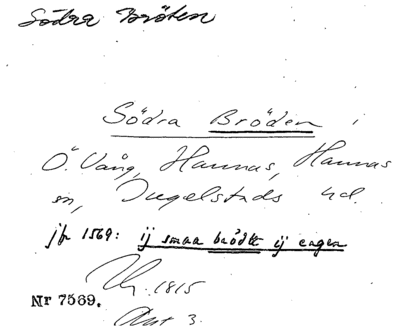 Södra Bröten
Södra Bröden i
Ö. Vång, Hannas, Hannas
sn, Ingelstads hd.
jfr 1569: ij smaa brödtt ij engen
1815
Nr 7569.
Akt 3.